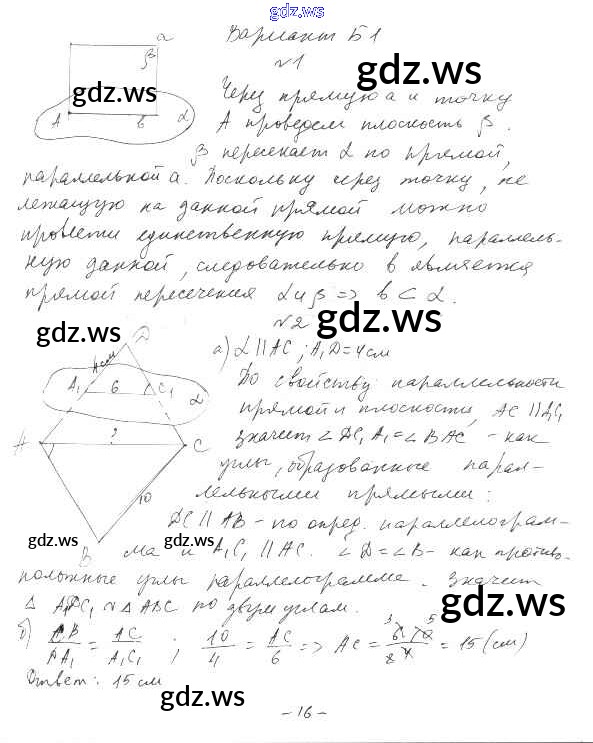 gdz.ws
Вариант Б1
№1
a
β
gdz.ws
A
b
α
gdz.ws
Через прямую a и точку
A проведем плоскость β.
β пересекает α по прямой,
параллельной a. Поскольку через точку, не
лежащую на данной прямой можно
провести единственную прямую, параллель-
ную данной, следовательно b является
прямой пересечения α и β => b ⊂ α.
gdz.ws
gdz.ws
№2
D
4см
A₁
6
C₁
α
A
?
C
10
B
а) α || AC; A₁D = 4см
По свойству параллельности
прямой и плоскости, AC || A₁C₁
значит ∠DC₁A₁ = ∠BAC - как
углы, образованные парал-
лельными прямыми:
DC || AB - по опред. параллелограм-
gdz.ws
gdz.ws
ма и A₁C₁ || AC. ∠D = ∠B - как противо-
положные углы параллелограмма. Значит
△ A₁DC₁ ~ △ ABC по двум углам.
gdz.ws
б) CB/AA₁ = AC/A₁C₁; 10/4 = AC/6 => AC = = 15 (см)
Ответ: 15 см
gdz.ws
- 16 -